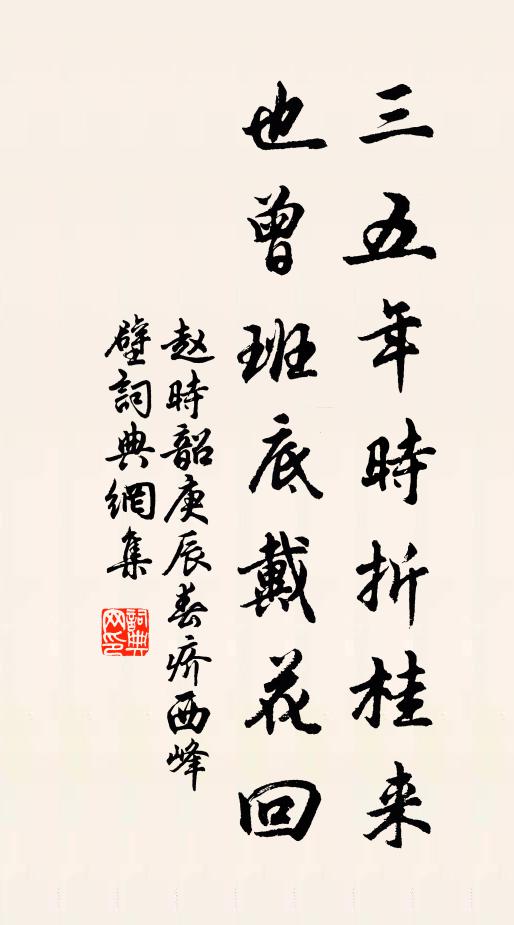 三五年時折桂来
也曾班底戴花回
赵時韶庚辰春疥西峰
壁詞典網集
詞典網印